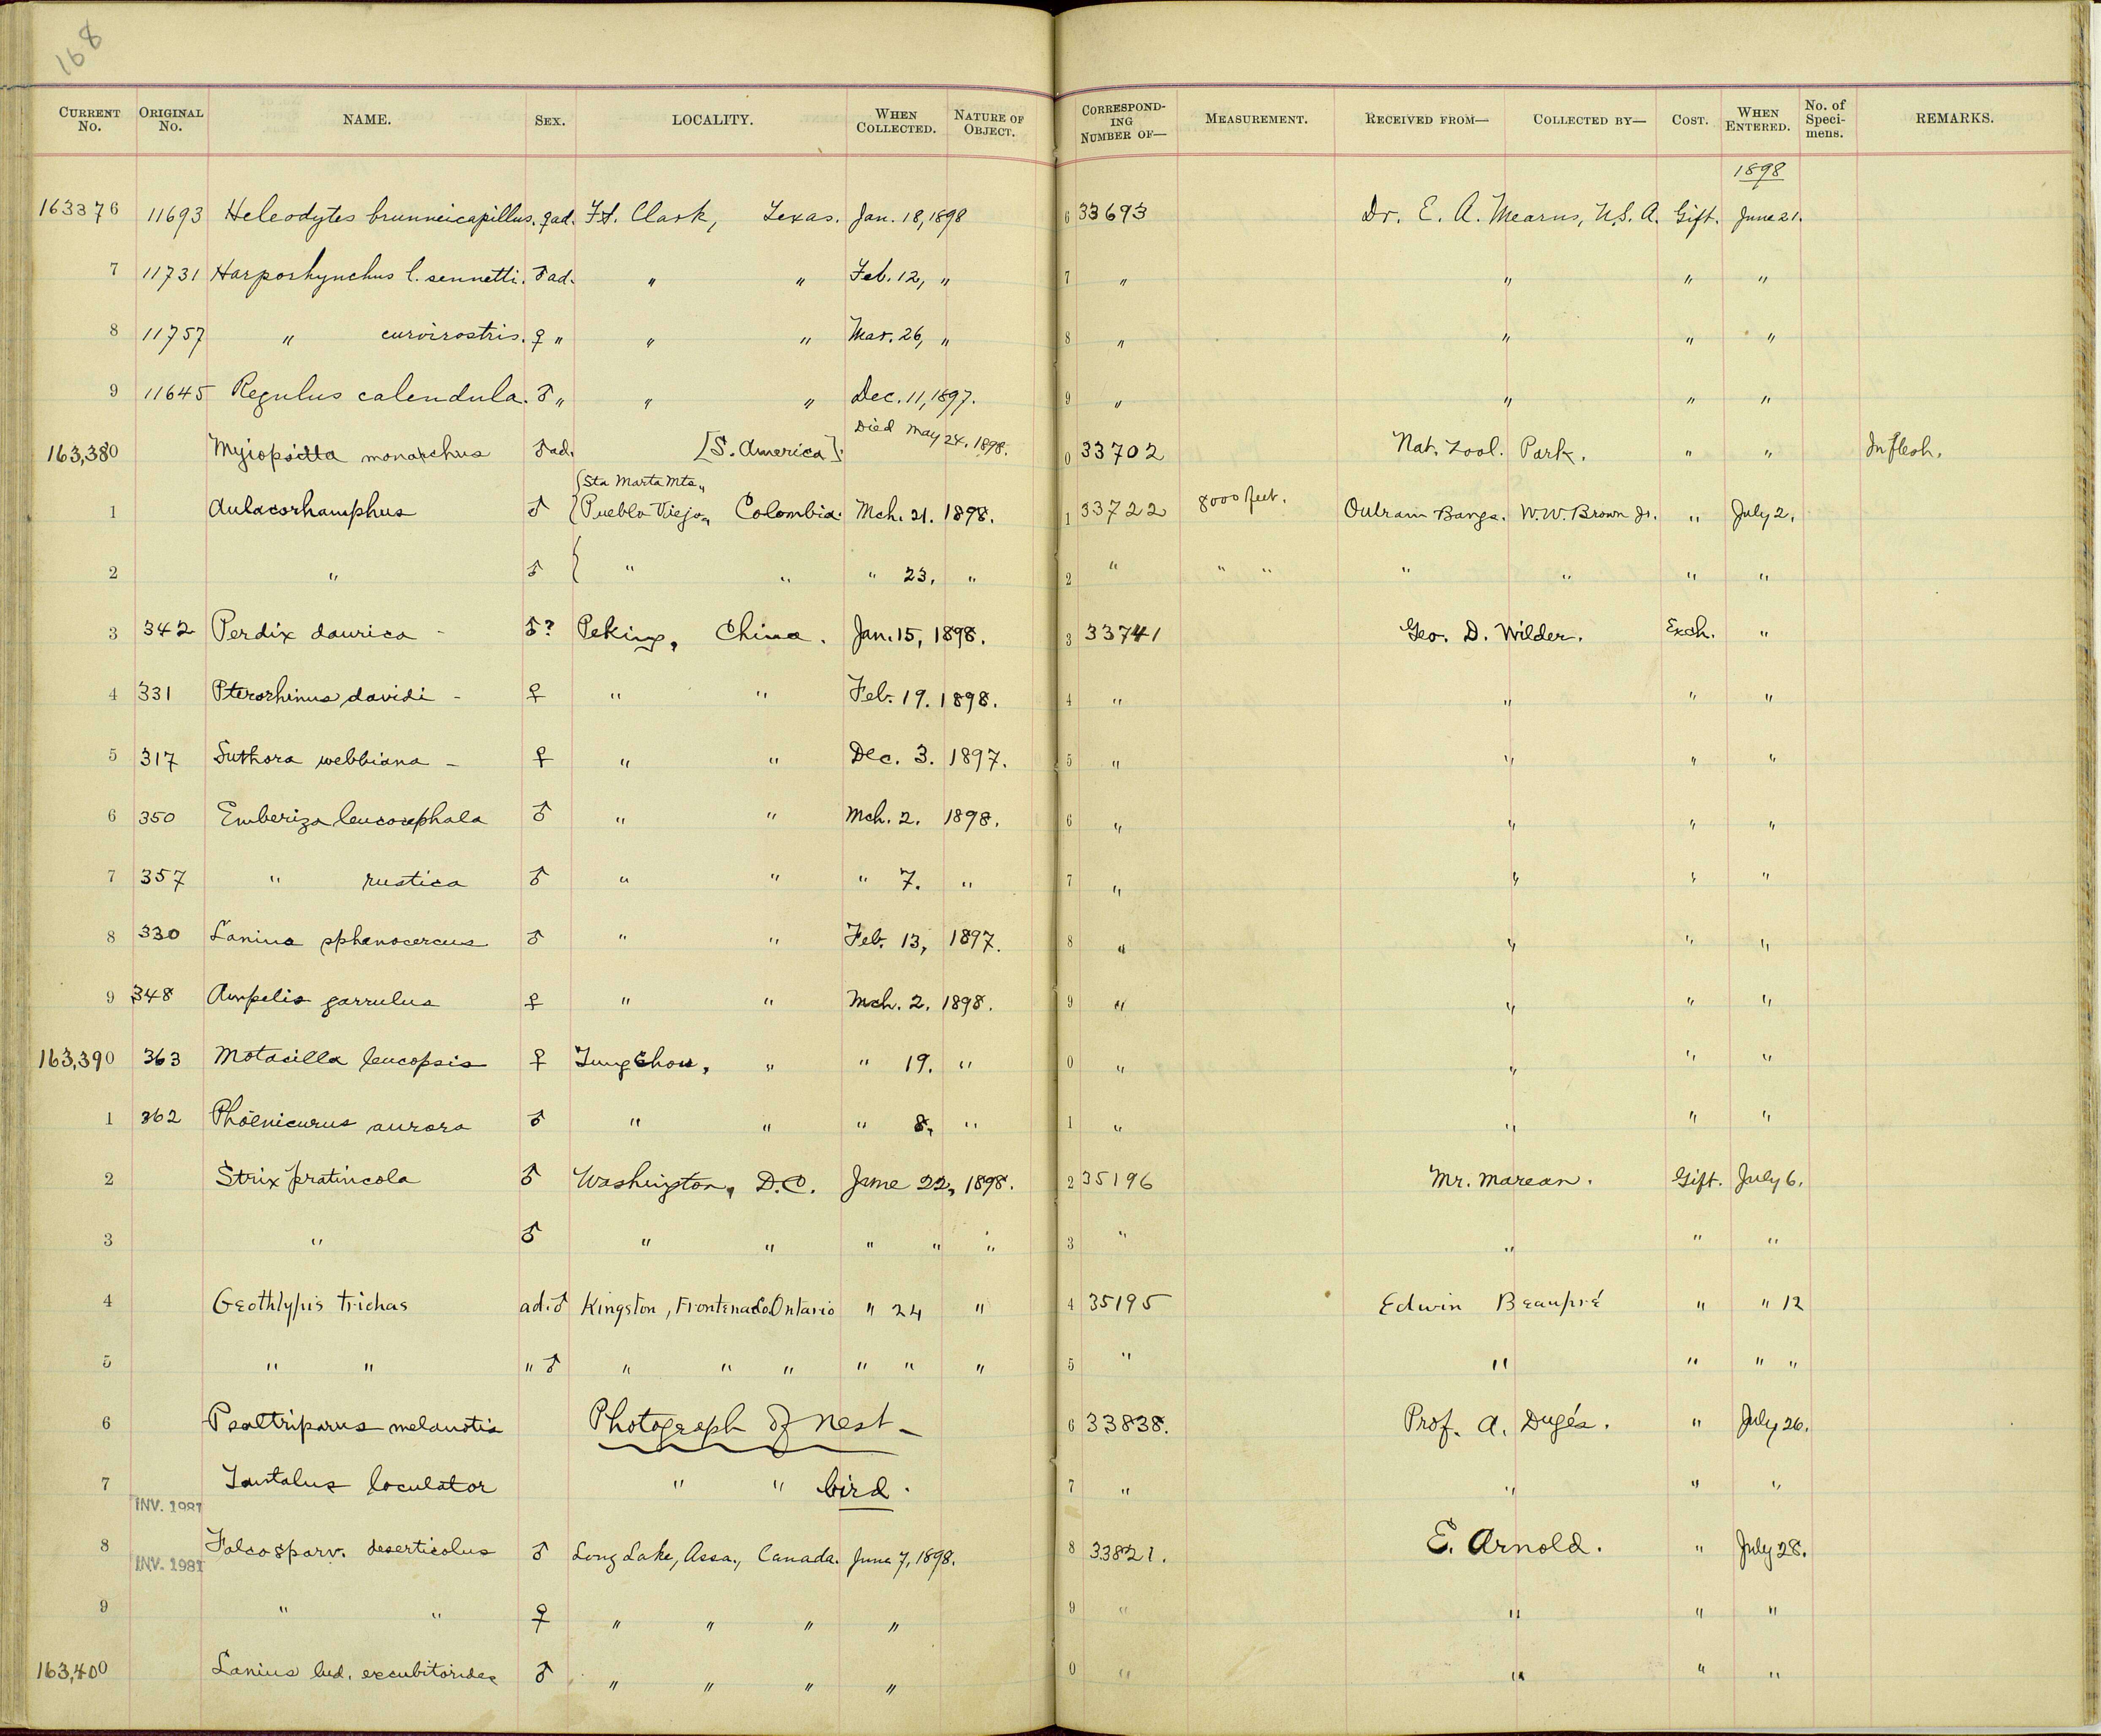 168
CURRENT No. ORIGINAL No. NAME. SEX. LOCALITY. WHEN COLLECTED. NATURE OF OBJECT. CORRESPONDING NUMBER OF— MEASUREMENT. RECEIVED FROM— COLLECTED BY— COST. WHEN ENTERED. No. of Specimens. REMARKS.
1898
163376 11693 Heleodytes brunneicapillus. ♀ad. Ft. Clark, Texas. Jan. 18, 1898 6 33693 Dr. E. A. Mearns, U.S.A. Gift. June 21.
7 11731 Harporhynchus l. sennetti. ♂ad. " " Feb. 12, " 7 " " " "
8 11757 " curvirostris. ♀ " " " Mar. 26, " 8 " " " "
9 11645 Regulus calendula. ♂ " " " Dec. 11, 1897. 9 " " " "
163,380 Myiopsitta monachus ♂ad. [S. America]. Died May 24, 1898. 0 33702 Nat. Zool. Park. " " In flesh.
1 Aulacorhamphus ♂ {Sta Marta Mts., Pueblo Viejo, Colombia. Mch. 21. 1898. 1 33722 8000 feet. Outram Bangs. W.W. Brown Jr. " July 2.
2 " ♂ { " " " 23, " 2 " " " " " " "
3 342 Perdix daurica - ♂? Peking, China. Jan. 15, 1898. 3 33741 Geo. D. Wilder. Exch. "
4 331 Pterorhinus davidi - ♀ " " Feb. 19. 1898. 4 " " " "
5 317 Suthora webbiana - ♀ " " Dec. 3. 1897. 5 " " " "
6 350 Emberiza leucocephala ♂ " " Mch. 2. 1898. 6 " " " "
7 357 " rustica ♂ " " " 7. " 7 " " " "
8 330 Lanius sphenocercus ♂ " " Feb. 13, 1897. 8 " " " "
9 348 Ampelis garrulus ♀ " " Mch. 2, 1898. 9 " " " "
163,390 363 Motacilla leucopsis ♀ Tungchou, " " 19. " 0 " " " "
1 362 Phoenicurus aurora ♂ " " " 8, " 1 " " " "
2 Strix pratincola ♂ Washington, D.C. June 22, 1898. 2 35196 Mr. Marean. Gift. July 6.
3 " ♂ " " " " " 3 " " " "
4 Geothlypis trichas ad. ♂ Kingston, Frontenac Co. Ontario " 24 " 4 35195 Edwin Beaupré " " 12
5 " " " ♂ " " " " " " 5 " " " " "
6 Psaltriparus melanotis Photograph of nest - 6 33838. Prof. A. Dugés. " July 26.
7 Tantalus loculator " " bird. 7 " " " "
INV. 1981
8 Falco sparv. deserticolus ♂ Long Lake, Assa., Canada. June 7, 1898. 8 33821. E. Arnold. " July 28.
INV. 1981
9 " " ♀ " " " " 9 " " " "
163,400 Lanius lud. excubitorides ♂ " " " " 0 " " " "